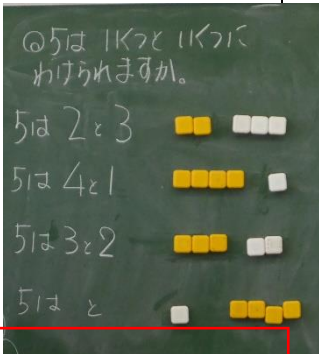 @5は いくつと いくつに
わけられますか。
5は 2と3
5は 4と1
5は 3と2
5は と